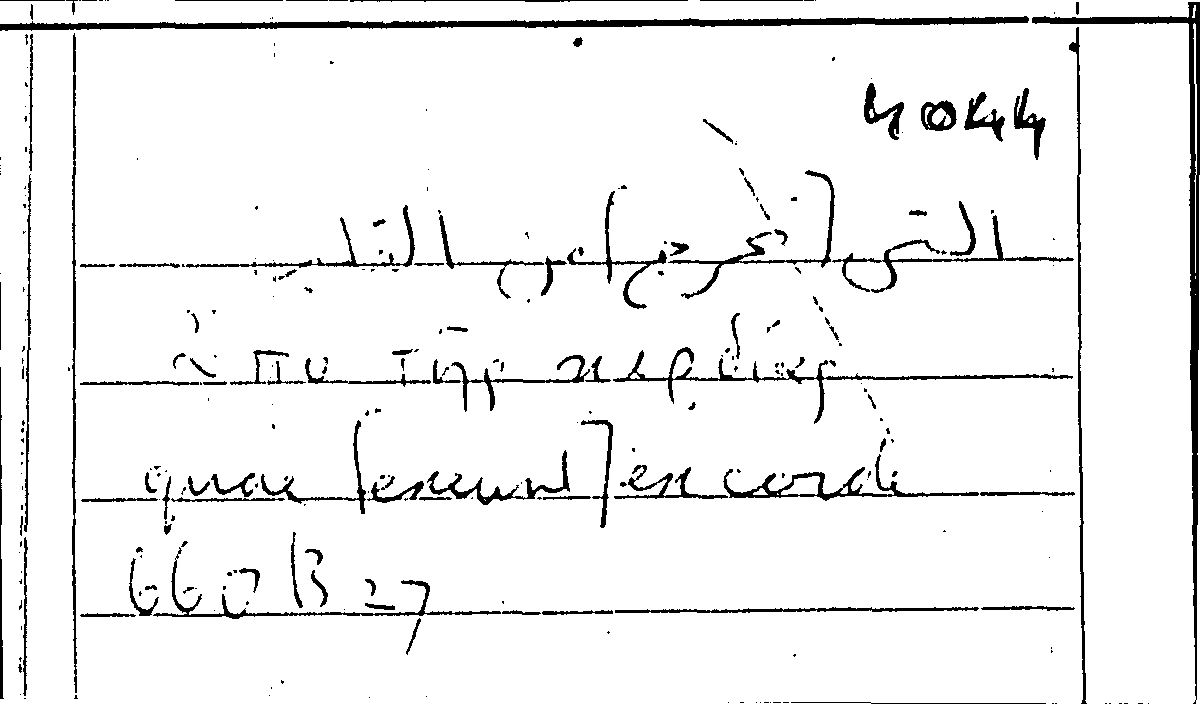 التى [تخرج] من القلب
ἀπὸ τῆς καρδίας
quae [exeunt] ex corde
660 B 27